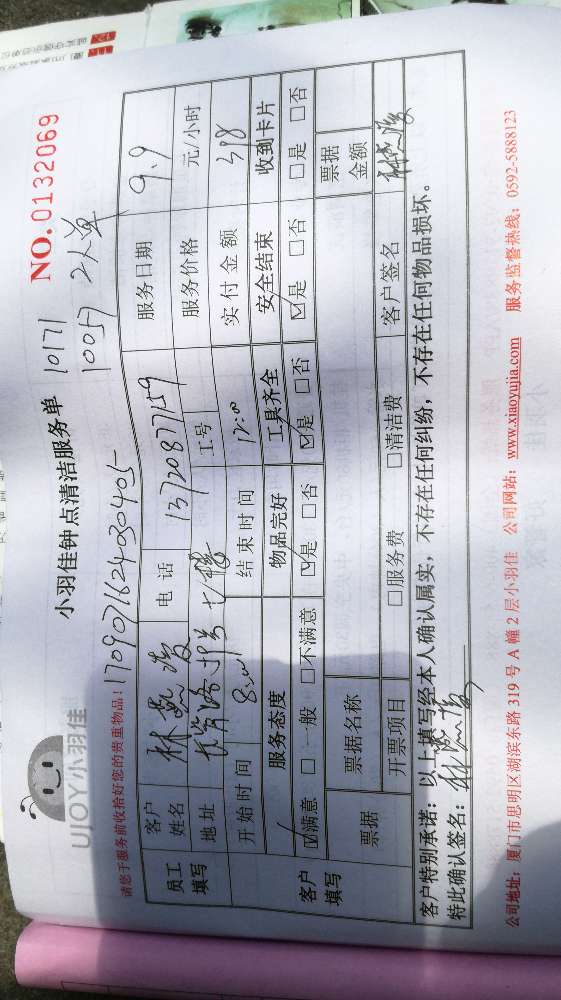 UJOY小羽佳
小羽佳钟点清洁服务单
NO.0132069
10171
10057 2人单
请您于服务前收拾好您的贵重物品!
1709071624030405
员工填写
客户姓名 林燕 电话 13720877159 服务日期 9.9
地址 七楼 工号 服务价格 元/小时
开始时间 8:00 结束时间 12:00 实付金额 398
客户填写
服务态度 物品完好 工具齐全 安全结束 收到卡片
☑满意 □一般 □不满意 ☑是 □否 ☑是 □否 ☑是 □否 □是 □否
票据 票据名称 票据金额
开票项目 □服务费 □清洁费 客户签名 林燕
客户特别承诺:以上填写经本人确认属实,不存在任何纠纷,不存在任何物品损坏。
特此确认签名:林燕
公司地址:厦门市思明区湖滨东路 319 号 A 幢 2 层小羽佳 公司网站:www.xiaoyujia.com 服务监督热线:0592-5888123